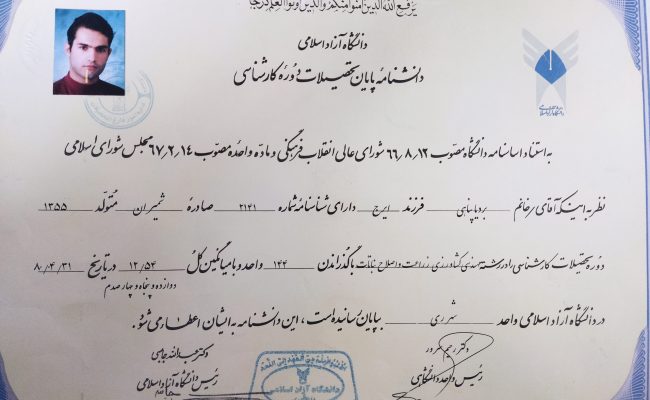 یرفع الله الذین آمنوا منکم والذین اوتوا العلم درجات
دانشگاه آزاد اسلامی
دانشنامهٔ پایان تحصیلات دورهٔ کارشناسی
دانشگاه آزاد اسلامی
به استناد اساسنامه دانشگاه مصوب ۶۶٫۸٫۱۲ شورای عالی انقلاب فرهنگی و ماده واحده مصوب ۶۷٫۲٫۱۴ مجلس شورای اسلامی
نظر به اینکه آقای / خانم بردیا پناهی فرزند ایرج دارای شناسنامهٔ شماره ۲۱۴۱ صادرهٔ شمیران متولّد ۱۳۵۵
دوره تحصیلات کارشناسی را در رشته مهندسی کشاورزی زراعت و اصلاح نباتات با گذراندن ۱۴۴ واحد و با میانگین کل ۱۲/۵۴ در تاریخ ۸۰/۴/۳۱
دوازده و پنجاه و چهار صدم
در دانشگاه آزاد اسلامی واحد شهر ری بپایان رسانیده است، این دانشنامه به ایشان اعطاء می شود.
دکتر
رئیس واحد دانشگاهی
دانشگاه آزاد اسلامی
دکتر عبدالله جاسبی
رئیس دانشگاه آزاد اسلامی